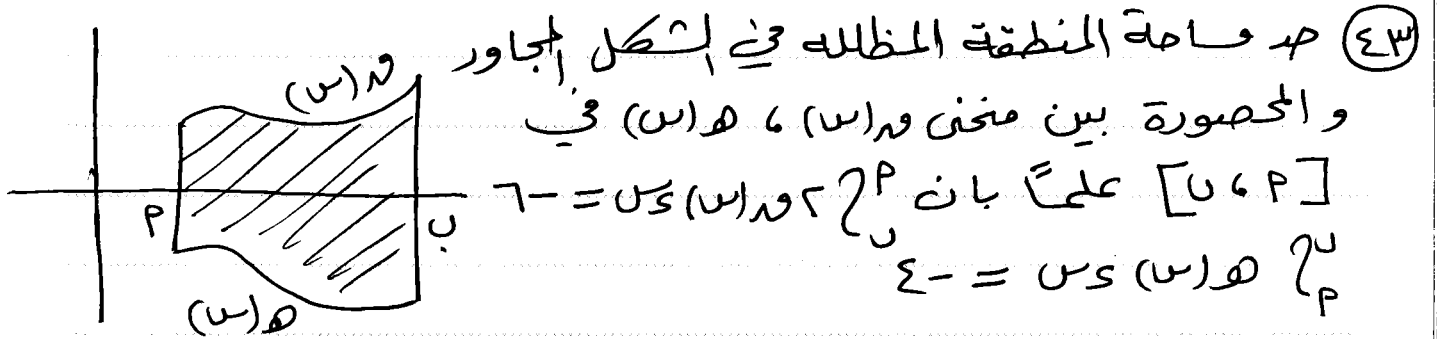 ٤٣ جد مساحة المنطقة المظلله في الشكل المجاور
و المحصورة بين منحنى ق(س) ، هـ(س) في
[أ ، ب] علماً بان ∫ب^أ ٢ق(س) ءس = -٦
∫أ^ب هـ(س) ءس = -٤
ق(س)
أ
ب
هـ(س)